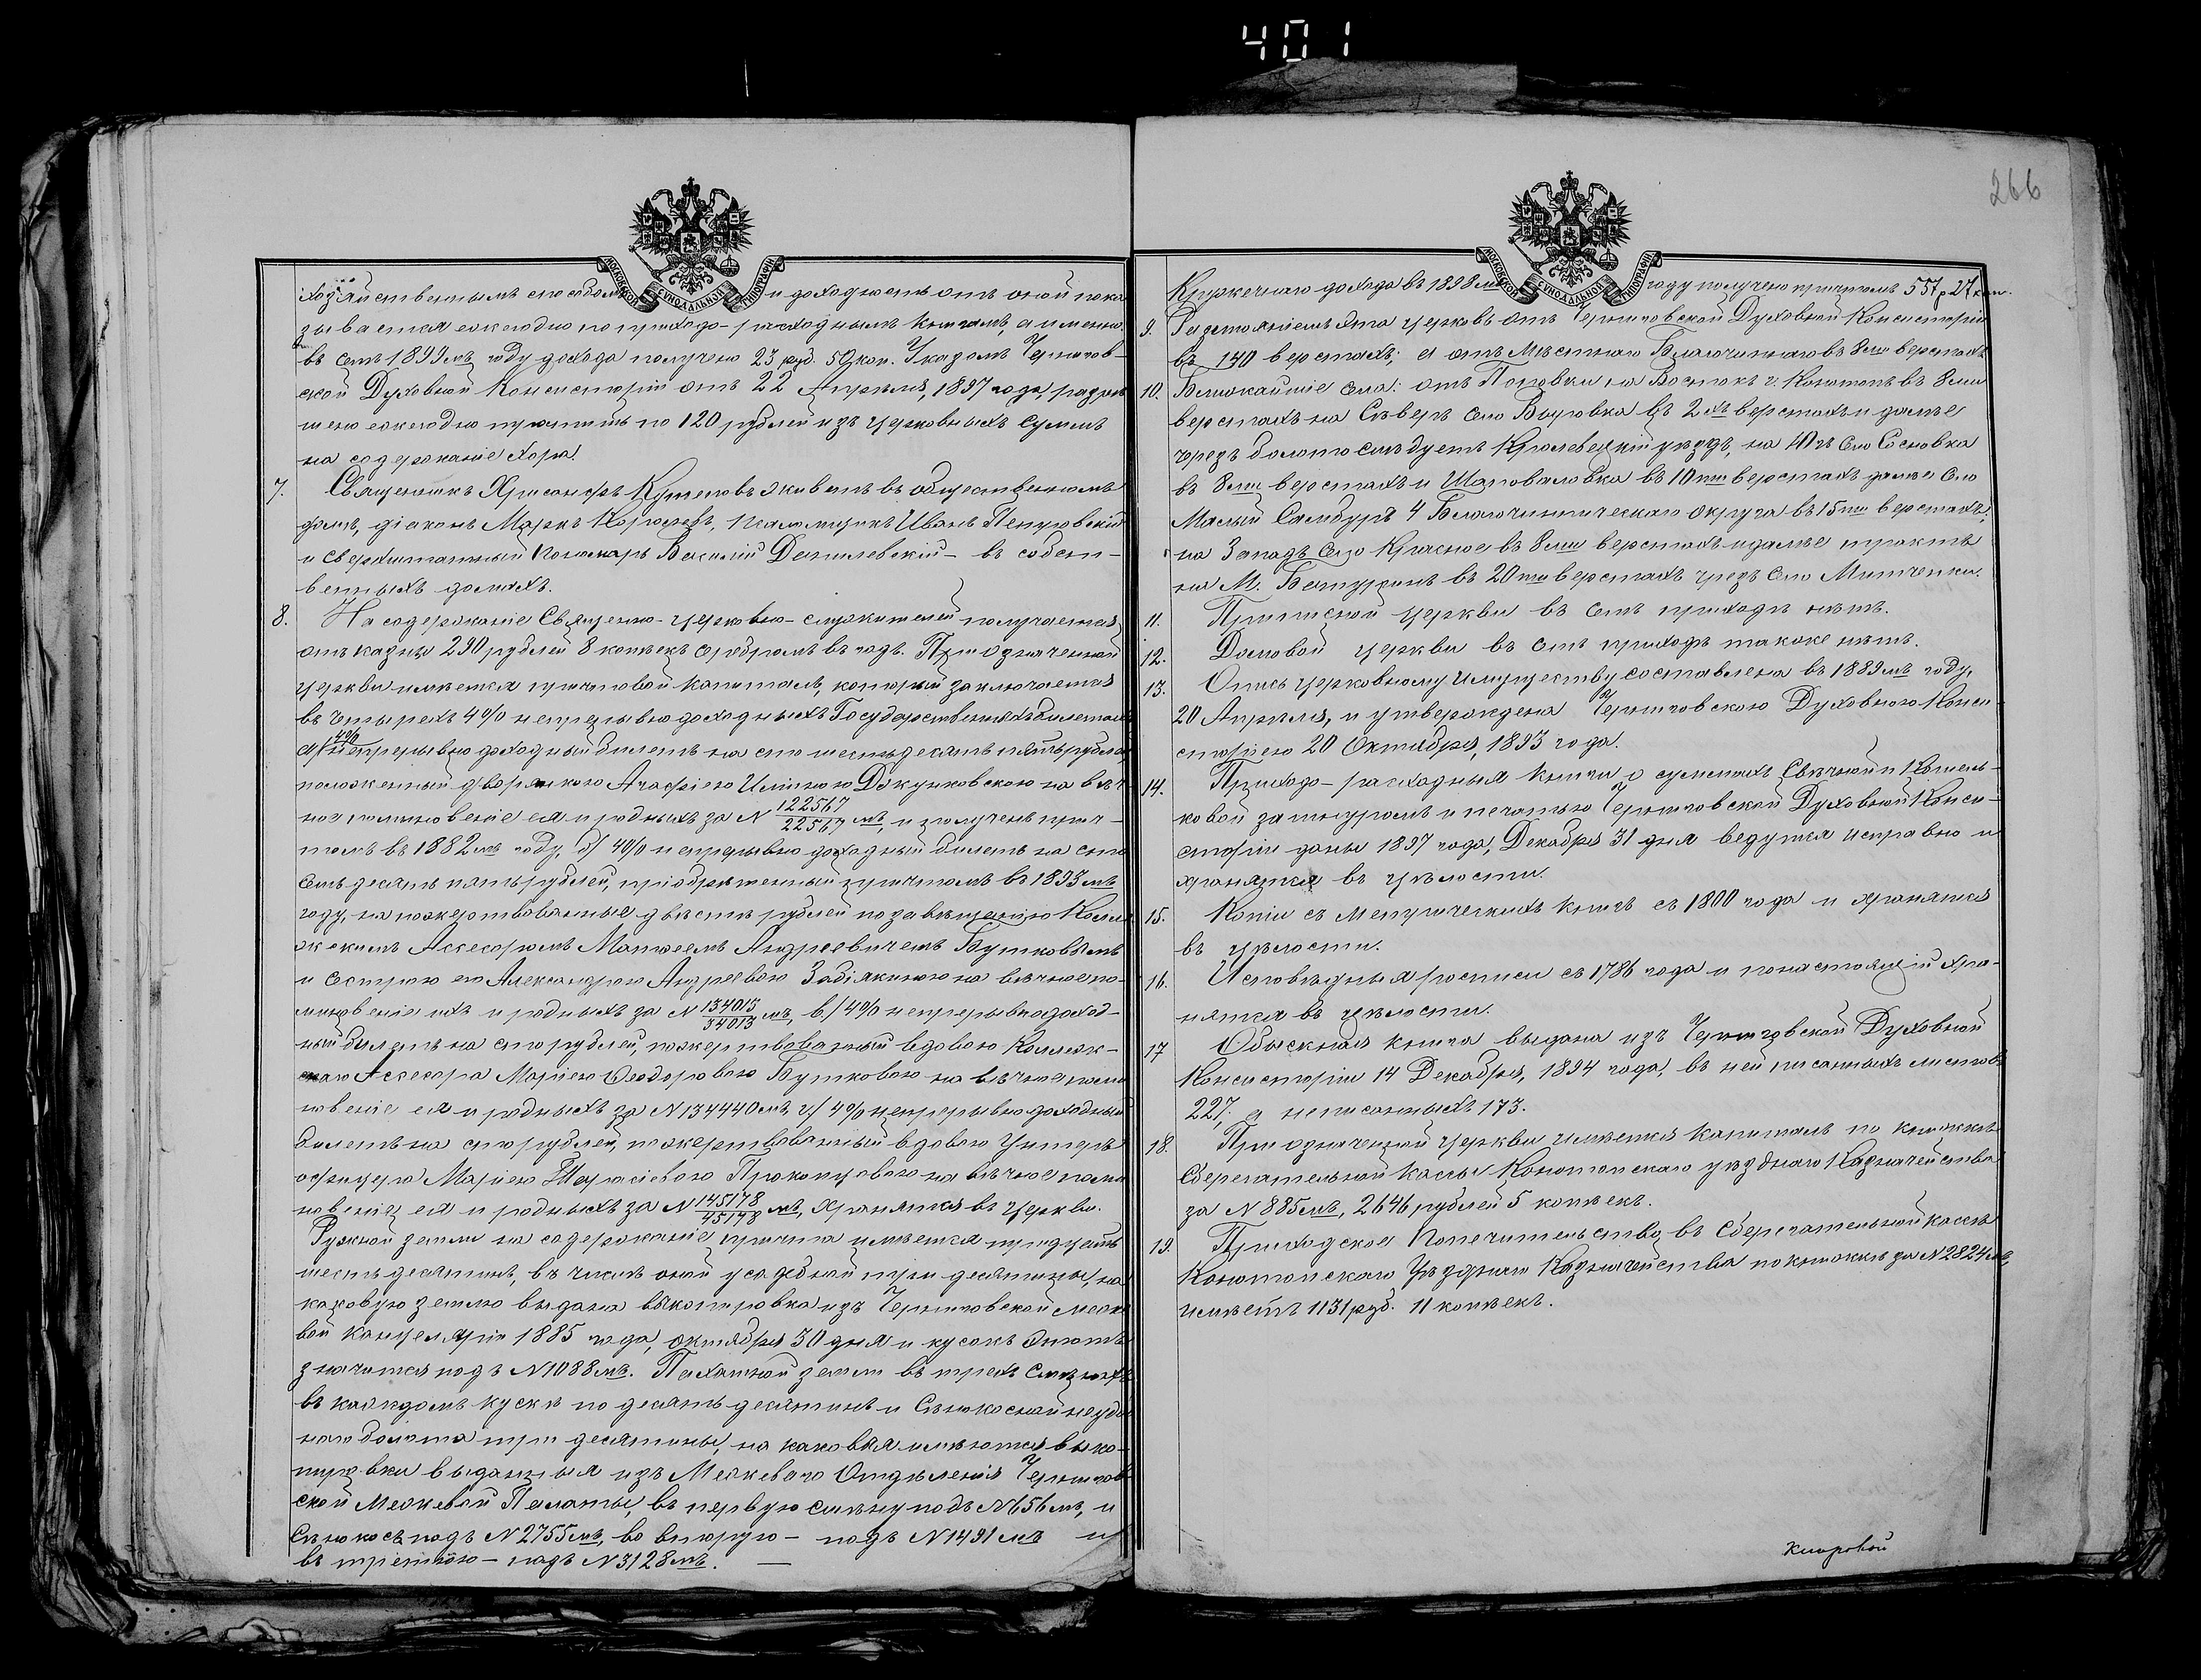 401
266
МОСКОВСКОЙ СѴНОДАЛЬНОЙ ТИПОГРАФІИ
хозяйственнымъ способомъ и доходность отъ оной пока
зывается ежегодно по приходо-расходнымъ книгамъ, а именно
въ семъ 1899мъ году дохода получено 23 руб. 50 коп. Указомъ Чернигов-
ской Духовной Консисторіи отъ 22 Апрѣля, 1897 года, разрѣ
шено ежегодно причтить по 120 рублей изъ церковныхъ суммъ
на содержаніе хора.
7. Священникъ Хрисанфъ Кутеповъ живетъ въ общественномъ
домѣ, діаконъ Маркъ псаломщикъ Иванъ
и сверхштатный пономарь Василій Данилевскій - въ собст-
венныхъ домахъ.
8. На содержаніе Священно-церковно-служителей получается
отъ казны 290 рублей 8 копѣекъ серебромъ въ годъ. При означенной
церкви имѣется причтовой капиталъ, который заключается
въ четырехъ 4% непрерывно доходныхъ Государственныхъ билетахъ
а) 4% непрерывно доходный билетъ на сто шестьдесятъ пять рублей
положенный дворянкою Агафіею Иліиною на вѣч-
ное поминовеніе ея и родныхъ за N 122567/22567 мъ, и полученъ прич-
томъ въ 1882мъ году, б) 4% непрерывно доходный билетъ на сто
семьдесятъ пять рублей, пріобрѣтенный причтомъ въ 1893мъ
году, на пожертвованные двѣсти рублей по завѣщанію Колле
жскимъ Ассесоромъ Матѳеемъ Андреевичемъ Бутковымъ
и сестрою его Александрою Андреевою Забіякиною на вѣчное по-
миновеніе ихъ и родныхъ за N 134013/34013 мъ, в) 4% непрерывно доход-
ный билетъ на сто рублей, пожертвованный вдовою Коллеж-
скаго Ассесора Маріею Ѳеодоровою Бутковою на вѣчное поми
новеніе ея и родныхъ за N 134440мъ, г) 4% непрерывно доходный
билетъ на сто рублей, пожертвованный вдовою Унтеръ
офицера Маріею Прокопцовою на вѣчное поми
новеніе ея и родныхъ за N 145178/45178 мъ, хранятся въ церкви.
Ружной земли на содержаніе причта имѣется тридцать
шесть десятинъ, въ числѣ оной усадебной три десятины, на
каковую землю выдана выкопировка изъ Черниговской меже
вой канцеляріи 1885 года, октября 30 дня и кусокъ этотъ
значится подъ N 1088мъ. Пахатной земли въ трехъ смѣнахъ
въ каждомъ кускѣ по десять десятинъ и Сѣнокосной неудоб
наго болота три десятины, на каковыя имѣются выко-
пировки выданныя изъ Межеваго Отдѣленія Чернигов
ской Межевой Палаты, въ первую смѣну подъ N 656мъ, и
Сѣнокосъ подъ N 2755мъ, во вторую - подъ N 1491мъ и
въ третью - подъ N 3128мъ. —
МОСКОВСКОЙ СѴНОДАЛЬНОЙ ТИПОГРАФІИ
Кружечнаго дохода въ 1898мъ году получено причтомъ 557 р. 27 коп.
9. Разстояніемъ эта церковь отъ Черниговской Духовной Консисторіи
въ 140 верстахъ; а отъ Мѣстнаго Благочиннаго въ 8ми верстахъ
10. Ближайшіе села: отъ Поповки на Востокъ г. Конотопъ въ 8ми
верстахъ на Сѣверъ Село Выровка въ 2хъ верстахъ и далѣе
чрезъ болото слѣдуетъ Кролевецкій уѣздъ, на Югъ Село Сосновка
въ 8ми верстахъ и Шаповаловка въ 10ти верстахъ далѣе Село
Малый Самбуръ 4 Благочинническаго округа въ 15ти верстахъ;
на Западъ Село Красное въ 8ми верстахъ и далѣе трактъ
на М. Батуринъ въ 20ти верстахъ чрезъ Село Митченки.
11. Приписной церкви въ семъ приходѣ нѣтъ.
12. Домовой церкви въ семъ приходѣ также нѣтъ.
13. Опись церковному имуществу составлена въ 1889мъ году,
20 Апрѣля, и утверждена Черниговскою Духовною Конси-
сторіею 20 Октября, 1893 года.
14. Приходо-расходныя книги о суммахъ Свѣчной и Кошель-
ковой за шнуромъ и печатью Черниговской Духовной Конси-
сторіи даны 1897 года, Декабря 31 дня ведутся исправно и
хранятся въ цѣлости.
15. Копіи съ Метрическихъ книгъ съ 1800 года и хранятся
въ цѣлости.
16. Исповѣдныя росписи съ 1786 года и по настоящій хра-
нятся въ цѣлости.
17 Обыскная книга выдана изъ Черниговской Духовной
Консисторіи 14 Декабря, 1894 года, въ ней писанныхъ листовъ
227, а неписанныхъ 173.
18. При означенной церкви имѣется капиталъ по книжкѣ
Сберегательной кассы Конотопскаго уѣзднаго Казначейства
за N 885мъ, 2646 рублей 5 копѣекъ.
19. Приходское Попечительство, въ Сберегательной кассѣ
Конотопскаго Уѣзднаго Казначейства по книжкѣ за N 2824мъ,
имѣетъ 1131 руб. 11 копѣекъ.